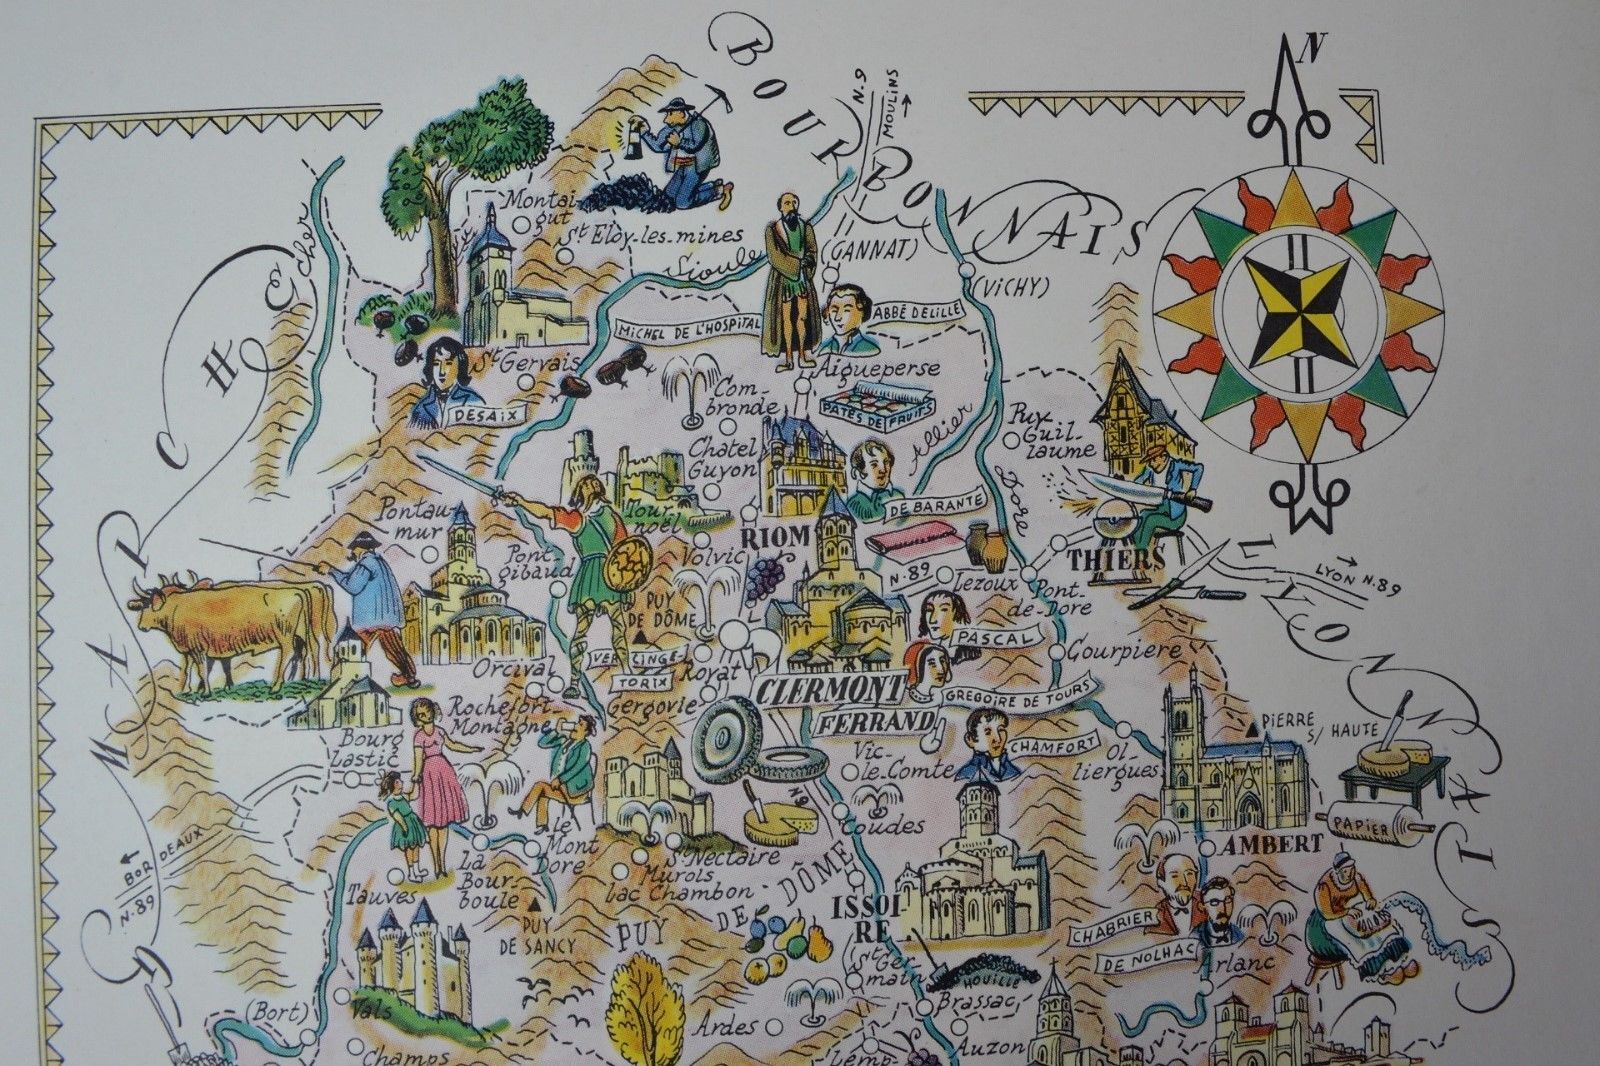 N
BOURBONNAIS
N.9
MOULINS
Cher
Montai-
gut
St Eloy-les-mines
Sioule
(GANNAT)
(VICHY)
MICHEL DE L'HOSPITAL
ABBÉ DELILLE
St Gervais
DESAIX
Aigueperse
PATES DE FRUITS
Com-
bronde
Chatel
Guyon
Allier
Puy-
Guil-
laume
MARCHE
Pontau-
mur
Tour-
noël
DE BARANTE
Dore
RIOM
Volvic
THIERS
Pont
gibaud
N.89
Lezoux
Pont-
de-Dore
LYON N.89
LYONNAIS
PUY
DE DÔME
PASCAL
VERCINGE-
TORIX
Courpière
Orcival
Royat
CLERMONT
FERRAND
GREGOIRE DE TOURS
Rochefort
Montagne
Gergovie
Bourg
Lastic
CHAMFORT
PIERRE
S/ HAUTE
Vic-
le-Comte
Ol-
liergues
N9
Coudes
PAPIER
BORDEAUX
N.89
le
Mont
Dore
AMBERT
La
Bour-
boule
St Nectaire
Murols
Lac Chambon
Tauves
PUY
DE SANCY
PUY DE DÔME
ISSOI-
RE
CHABRIER
DE NOLHAC
Arlanc
St Ger-
main
HOUILLE
Brassac
(Bort)
Vals
Ardes
Champs
Lemp-
Auzon